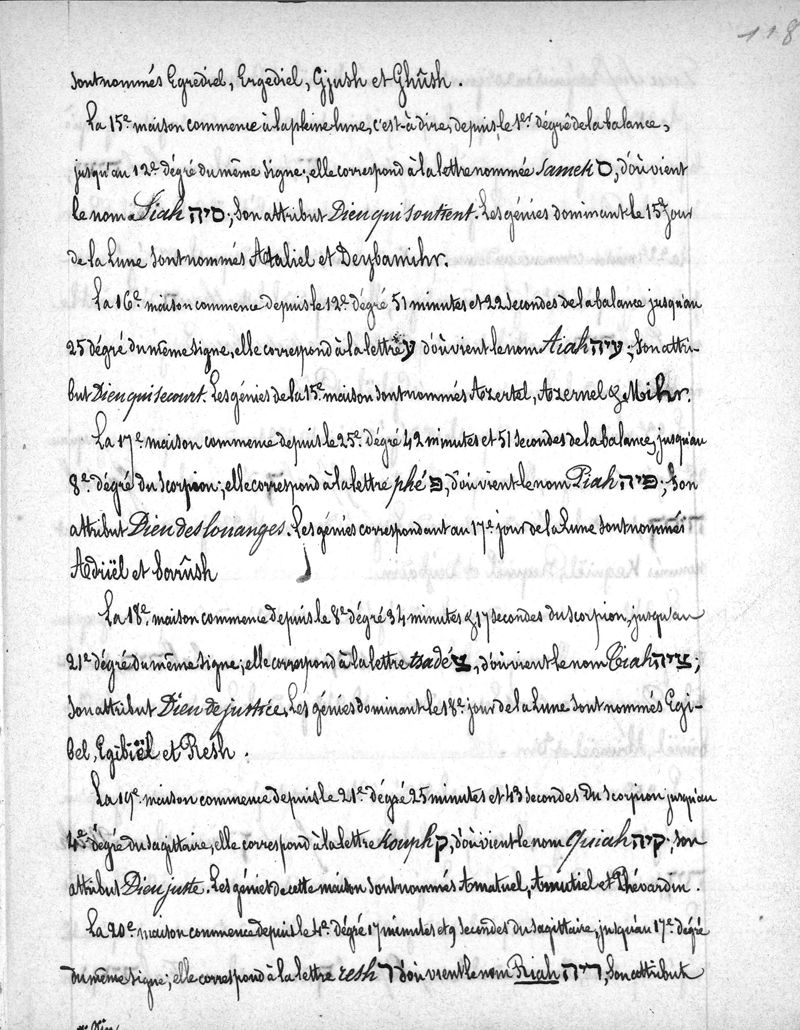 118
sont nommés Egrediel, Ergediel, Gjush et Ghûsh.
La 15e maison commence à la pleine lune, c'est-à dire, depuis, le 1er dégré de la balance,
jusqu'au 12e dégré du même signe; elle correspond à la lettre nommée Samek ס, d'où vient
le nom Siah סיה; son attribut Dieu qui soutient. Les génies dominant le 15e jour
de la Lune sont nommés Ataliel et Deybamihr.
La 16e maison commence depuis le 12e dégré 51 minutes et 22 secondes de la balance jusqu'au
25 dégré du même signe, elle correspond à la lettre ע d'où vient le nom Aiah עיה; son attri-
but Dieu qui secourt. Les génies de la 15e maison sont nommés Azertel, Azernel & Mihr.
La 17e maison commence depuis le 25e dégré 42 minutes et 51 secondes de la balance, jusqu'au
8e dégré du Scorpion; elle correspond à la lettre phé פ, d'où vient le nom Piah פיה; son
attribut Dieu des louanges. Les génies correspondant au 17e jour de la Lune sont nommés
Adriël et Sorûsh
La 18e maison commence depuis le 8e dégré 34 minutes & 17 secondes du Scorpion, jusqu'au
21e dégré du même signe; elle correspond à la lettre tsadé צ, d'où vient le nom Tsiah ציה;
son attribut Dieu de justice, Les génies dominant le 18e jour de la Lune sont nommés Egi-
bel, Egibiël et Resh.
La 19e maison commence depuis le 21e dégré 25 minutes et 43 secondes du Scorpion jusqu'au
4e dégré du sagittaire, elle correspond à la lettre Kouph ק, d'où vient le nom Quiah קיה; son
attribut Dieu juste. Les génies de cette maison sont nommés Amatuel, Amutiel et Phévardin.
La 20e maison commence depuis le 4e dégré 17 minutes et 9 secondes du sagittaire, jusqu'au 17e dégré
du même signe; elle correspond à la lettre resh ר d'où vient le nom Riah ריה, son attribut